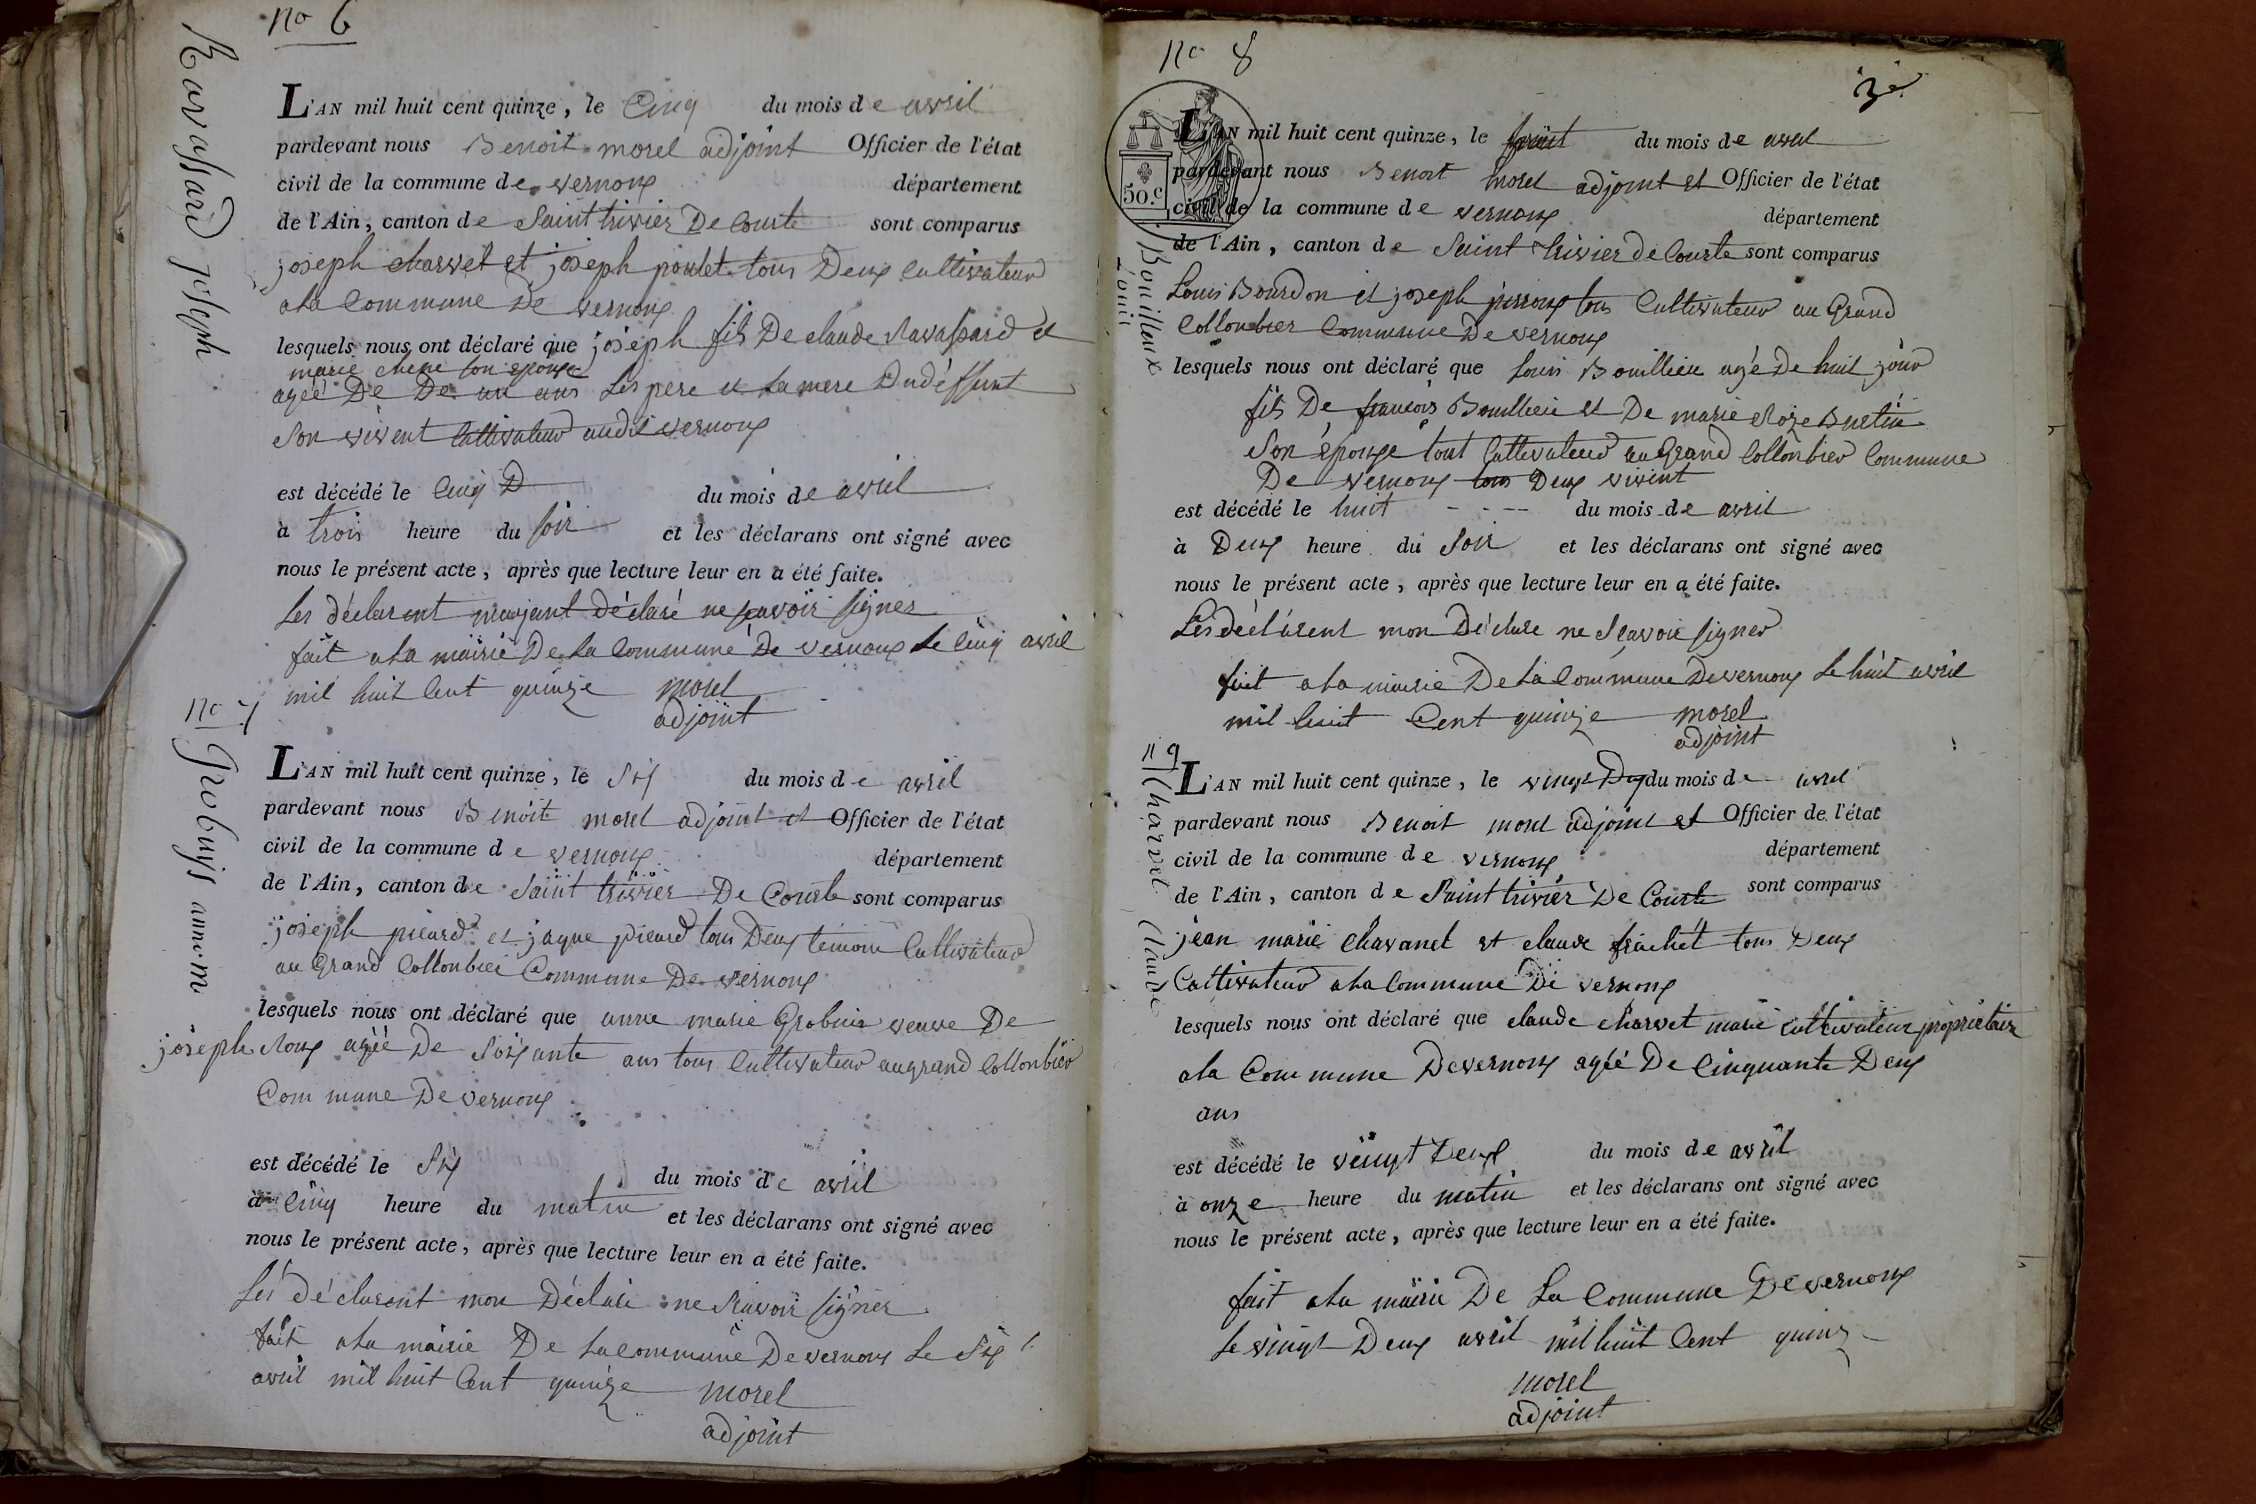 no 6
Ravassard joseph
L'AN mil huit cent quinze, le Cinq du mois de avril
pardevant nous Benoit morel adjoint Officier de l'état
civil de la commune de vernoux département
de l'Ain, canton de Saint trivier De Courte sont comparus
joseph charvet et joseph poulet tous Deux Cultivateur
a la Commune De vernoux
lesquels nous ont déclaré que joseph fils De claude Ravassard et
marie chene son epouse
agéé De De un ans Les pere et La mere Dudéffunt
Son vivent Cultivateur audit vernoux
est décédé le Cinq D du mois de avril
à trois heure du soir et les déclarans ont signé avec
nous le présent acte, après que lecture leur en a été faite.
Les déclarent déclaré ne scavoir signer
fait a la mairie De La Commune De vernoux Le Cinq avril
mil huit Cent quinze morel
adjoint
no 7
Grobuis anne m
L'AN mil huit cent quinze, le Six du mois de avril
pardevant nous Benoit morel adjoint et Officier de l'état
civil de la commune de vernoux département
de l'Ain, canton de Saint trivier De Courte sont comparus
joseph picard et jaque picard tous Deux temoin Cultivateur
au Grand Collonbier Commune De vernoux
lesquels nous ont déclaré que anne marie Grobuis veuve De
joseph Roux agéé De Soixante ans tous Cultivateur au grand Collonbier
Commune De vernoux
est décédé le Six du mois de avril
à Cinq heure du matin et les déclarans ont signé avec
nous le présent acte, après que lecture leur en a été faite.
Les déclarent mon Déclaré ne Scavoir signer
fait a la mairie De La commune De vernoux Le Six
avril mil huit Cent quinze morel
adjoint
no 8
3e
50.c
Bouilloux Louis
L'AN mil huit cent quinze, le huit du mois de avril
pardevant nous Benoit morel adjoint et Officier de l'état
civil de la commune de vernoux département
de l'Ain, canton de Saint trivier De Courte sont comparus
Louis Bourdon et joseph perroux tous Cultivateur au Grand
Collonbier Commune De vernoux
lesquels nous ont déclaré que Louis Bouillieu agé De huit jour
fils De francois Bouillieu et De marie Roze Buetin
Son épouze tout Cultivateur au Grand Collonbier Commune
De vernoux tous Deux vivent
est décédé le huit - - -- du mois de avril
à Deux heure du Soir et les déclarans ont signé avec
nous le présent acte, après que lecture leur en a été faite.
Les déclarent mon Déclare ne Scavoir signer
fait a la mairie De La Commune De vernoux Le huit avril
mil huit Cent quinze morel
adjoint
n 9
Charvet Claude
L'AN mil huit cent quinze, le vingt Deux du mois de avril
pardevant nous Benoit morel adjoint et Officier de l'état
civil de la commune de vernoux département
de l'Ain, canton de Saint trivier De Courte sont comparus
jean marie chavanel et claude frachet tous Deux
Cultivateur a la Commune De vernoux
lesquels nous ont déclaré que claude charvet marié cultivateur propriétair
a la Commune De vernoux agéé De Cinquante Deux
ans
est décédé le vingt Deux du mois de avril
à onze heure du matin et les déclarans ont signé avec
nous le présent acte, après que lecture leur en a été faite.
fait a la mairie De La Commune De vernoux
Le vingt Deux avril mil huit Cent quinz
morel
adjoint